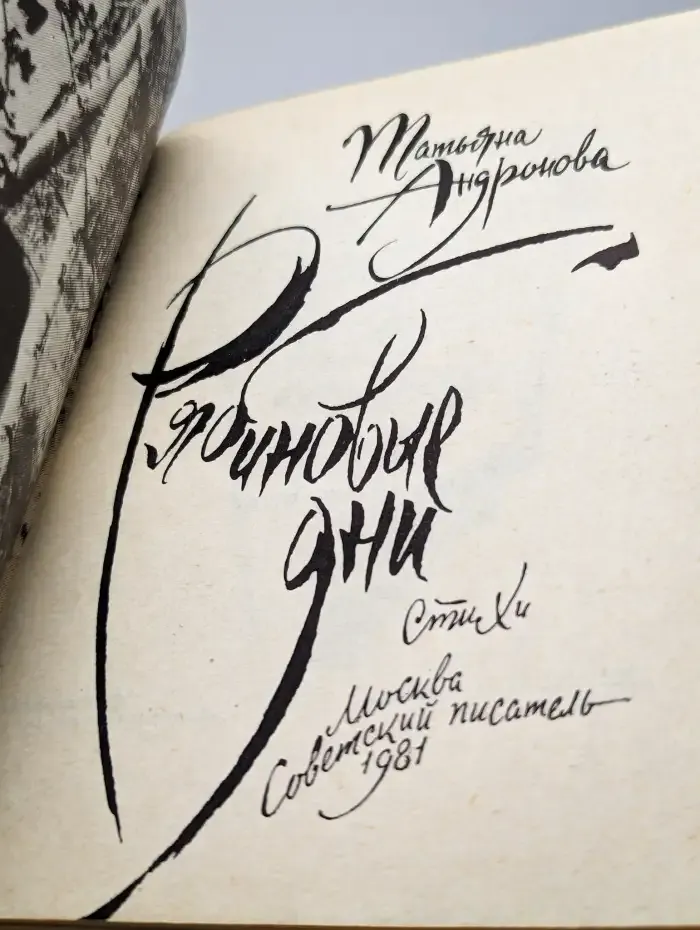 Татьяна
Андронова
Рябиновые
дни
стихи
Москва
Советский писатель
1981